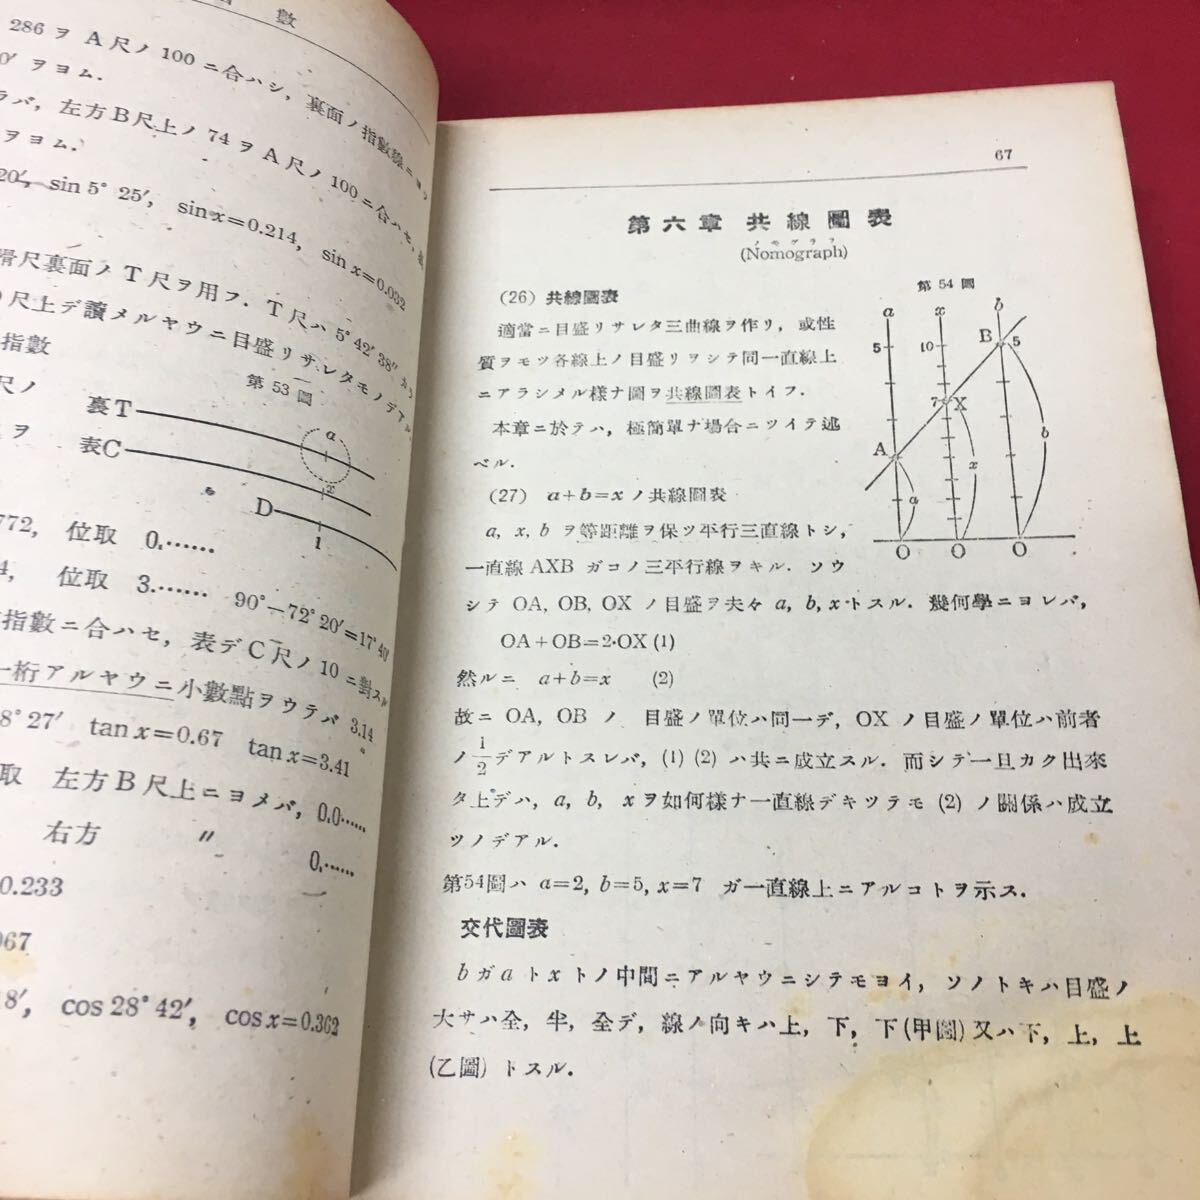 數
286 ヲ A 尺ノ 100 ニ合ハシ, 裏面ノ指數線ニヨリ
0′ ヲヨム.
ラバ, 左方B尺上ノ 74 ヲ A 尺ノ 100 ニ合ハセ,
ヲヨム.
20′, sin 5° 25′, sin x=0.214, sin x=0.032
滑尺裏面ノ T 尺ヲ用フ. T 尺ハ 5° 42′ 38″ カラ
尺上デ讀メルヤウニ目盛リサレタモノデアル.
指數
第 53 圖
尺ノ
裏T
a
ヲ
表C
x
D
1
772, 位取 0.……
4, 位取 3.…… 90°−72° 20′=17° 40′
指數ニ合ハセ, 表デ C 尺ノ 10 ニ對スル
一桁アルヤウニ小數點ヲウテバ 3.14
8° 27′ tan x=0.67 tan x=3.41
取 左方 B 尺上ニヨメバ, 0.0……
右方 〃 0.……
0.233
067
18′, cos 28° 42′, cos x=0.362
67
第六章 共線圖表
ノモグラフ
(Nomograph)
(26) 共線圖表
適當ニ目盛リサレタ三曲線ヲ作リ, 或性
質ヲモツ各線上ノ目盛リヲシテ同一直線上
ニアラシメル樣ナ圖ヲ共線圖表トイフ.
本章ニ於テハ, 極簡單ナ場合ニツイテ述
ベル.
第 54 圖
a x b
5 10 B 5
7 X
A
a x b
O O O
(27) a+b=x ノ共線圖表
a, x, b ヲ等距離ヲ保ツ平行三直線トシ,
一直線 AXB ガコノ三平行線ヲキル. ソウ
シテ OA, OB, OX ノ目盛ヲ夫々 a, b, x トスル. 幾何學ニヨレバ,
OA+OB=2·OX (1)
然ルニ a+b=x (2)
故ニ OA, OB ノ 目盛ノ單位ハ同一デ, OX ノ目盛ノ單位ハ前者
ノ 1/2 デアルトスレバ, (1) (2) ハ共ニ成立スル. 而シテ一旦カク出來
タ上デハ, a, b, x ヲ如何樣ナ一直線デキツテモ (2) ノ關係ハ成立
ツノデアル.
第54圖ハ a=2, b=5, x=7 ガ一直線上ニアルコトヲ示ス.
交代圖表
b ガ a ト x トノ中間ニアルヤウニシテモヨイ, ソノトキハ目盛ノ
大サハ全, 半, 全デ, 線ノ向キハ上, 下, 下 (甲圖) 又ハ下, 上, 上
(乙圖) トスル.